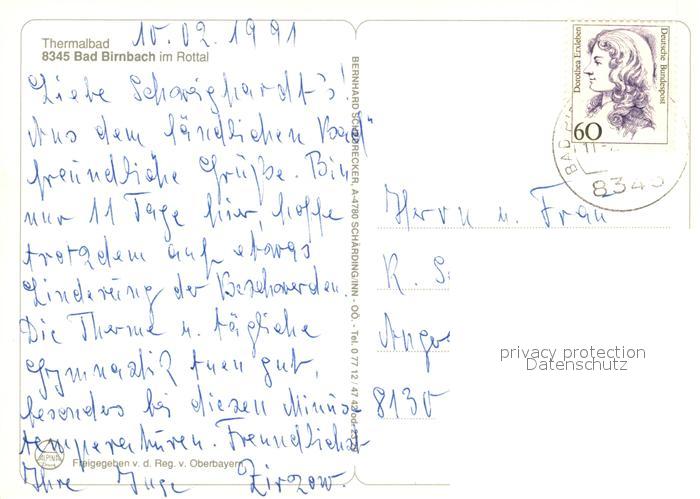 10.02.1991
Thermalbad
8345 Bad Birnbach im Rottal
Liebe Schweighardt's!
Aus dem "ländlichen Bad"
freundliche Grüße. Bin
nur 11 Tage hier, hoffe
trotzdem auf etwas
Linderung der Beschwerden.
Die Therme u. tägliche
Gymnastik tuen gut,
besonders bei diesen Minus-
temperaturen. Freundlichst
Ihre Inge Zirzow.
Freigegeben v. d. Reg. v. Oberbayern
BERNHARD A-4780 SCHÄRDING/INN - OÖ. - Tel. 0 77 12 / 47 43
Dorothea Erxleben
Deutsche Bundespost
60
BAD
8345
Herrn u. Frau
R. S
Ange
8130
privacy protection
Datenschutz